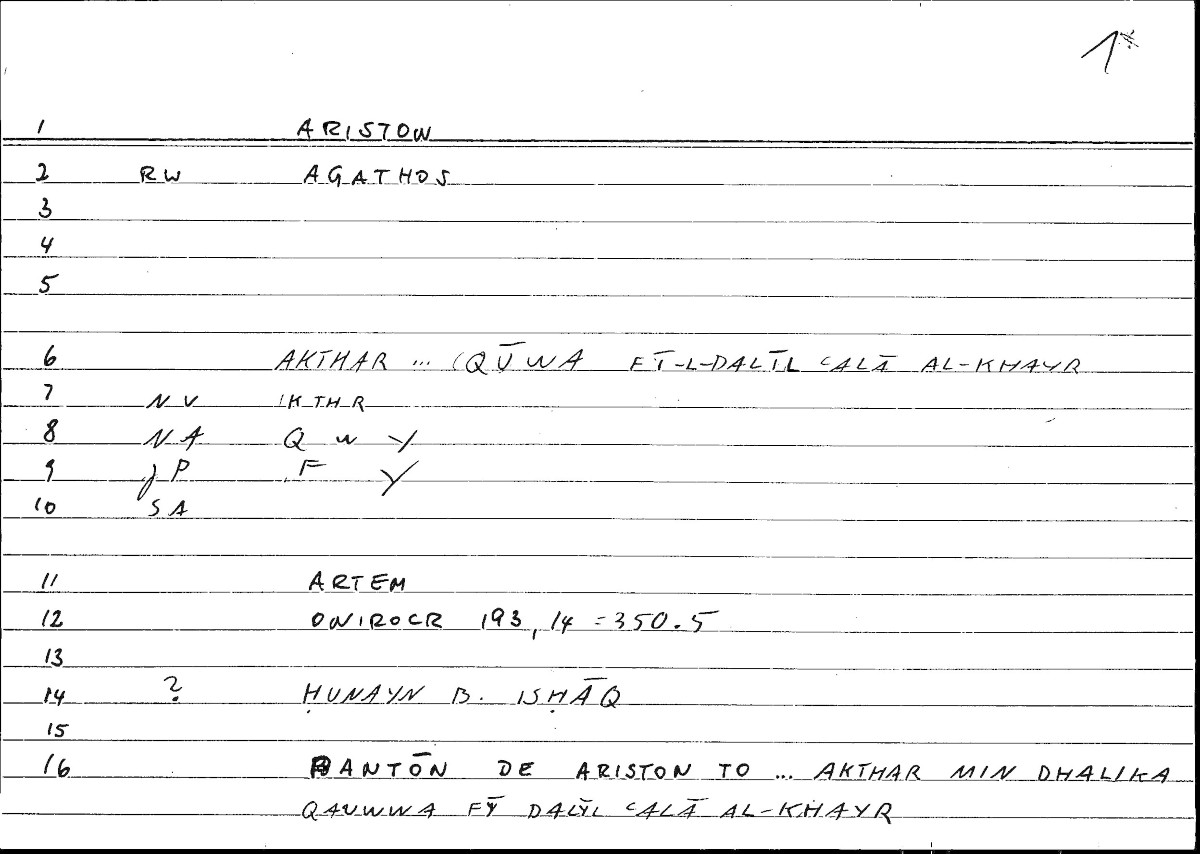 1
1 ARISTON
2 RW AGATHOS
3
4
5
6 AKTHAR ... QŪWA FĪ-L-DALĪL ʿALĀ AL-KHAYR
7 NV 'KTHR
8 NA Q W Y
9 JP F Y
10 SA
11 ARTEM
12 ONIROCR 193, 14 = 350.5
13
14 ? ḤUNAYN B. ISḤĀQ
15
16 PANTŌN DE ARISTON TO ... AKTHAR MIN DHALIKA
QAUWWA FȲ DALȲL ʿALĀ AL-KHAYR